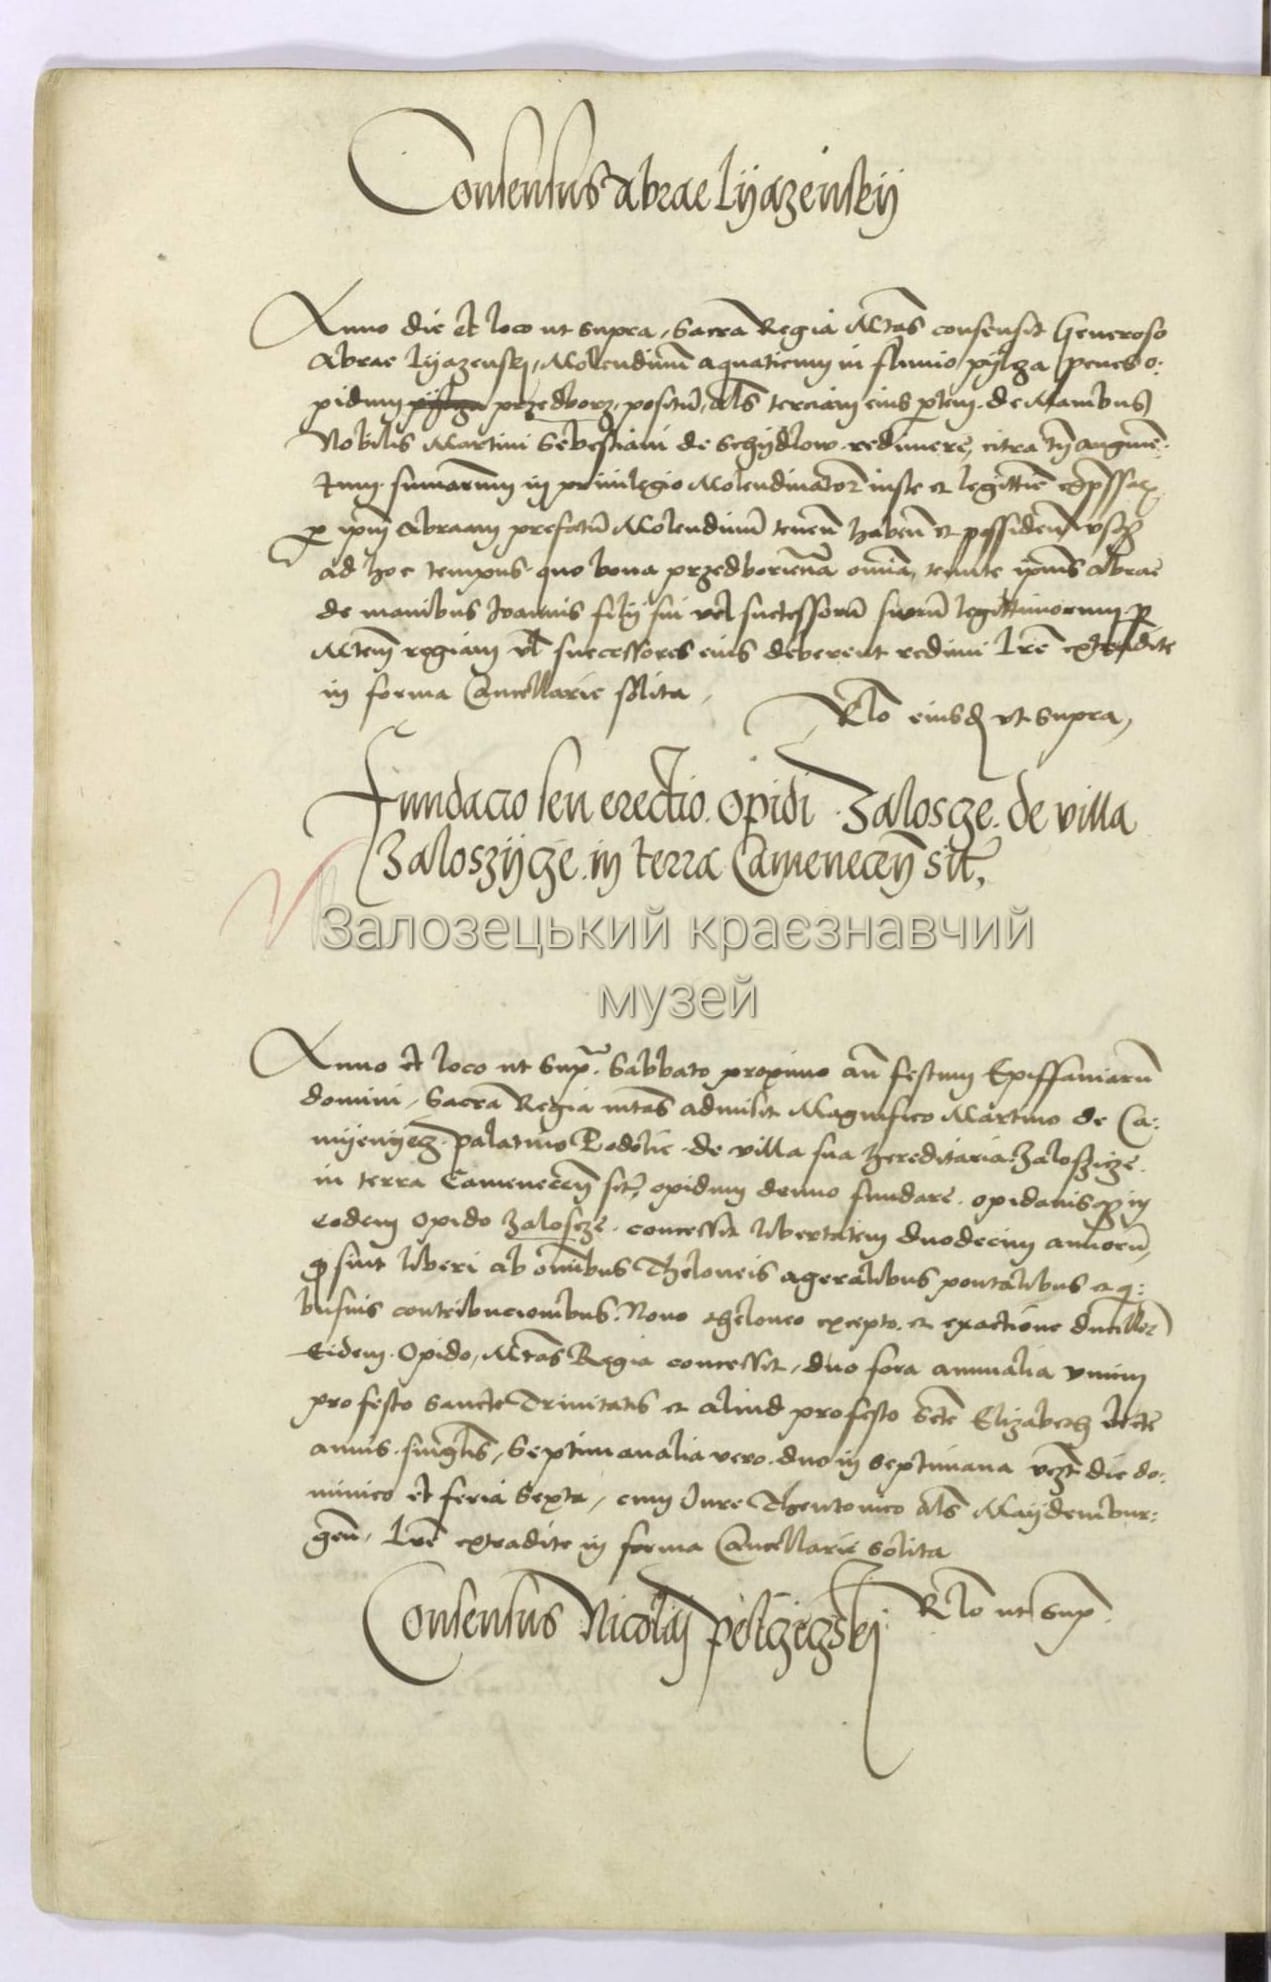 Consensus Abrae Lyazenskij
Anno die et loco ut supra, Sacra Regia Mtas consensit Generoso
Abrae Lyazenskj, Molendinum aquaticum in fluvio pylcza penes o:
pidum przedborz, positum, als terciam eius ptem de Manibus
Nobilis Martini Sebestiani de Schydlow redimere, citra tn augmen:
tum summarum in privilegio Molendinator iuste et legittime expssa
p ipm Abraam prefatum Molendinum tenen haben et possiden usq
ad hoc tempus quo bona przedboriensia omnia, tente ipius Abrae
de manibus Ioannis filij sui vel successorum suorum legittimorum p
Mtem regiam vel successores eius deberent redimi Lre extradite
in forma Cancellarie solita,
Rlo eiusd ut supra,
Fundacio seu erectio opidi Zaloscze de villa
Zaloszycze in terra Camenecen sit,
Залозецький краєзнавчий
музей
Anno et loco ut sup. Sabbato proximo an festum Epiffaniarum
domini, Sacra Regia mtas admisit Magnifico Martino de Ca:
myenyecz palatino Podolie de villa sua hereditaria Zaloszicze
in terra Camenecen sit, opidum denuo fundare opidanisq in
eodem opido Zaloscze concessit libertatem duodecim annorum,
q sint liberi ab omnibus Theloneis ageralibus pontalibus et q:
busvis contribucionibus. Novo theloneo excepto et exactione ducillor
Eidem Opido, Mtas Regia concessit, duo fora annualia unum
pro festo Sancte Trinitatis et aliud pro festo Scte Elizabeth
annis singulis, Septimanalia vero duo in septimana vezt die do:
minico et feria Sexta, cum Iure Theutonico als Maydembur:
gen, Lre extradite in forma Cancellarie solita
Rlo ut sup.
Consensus Nicolaj